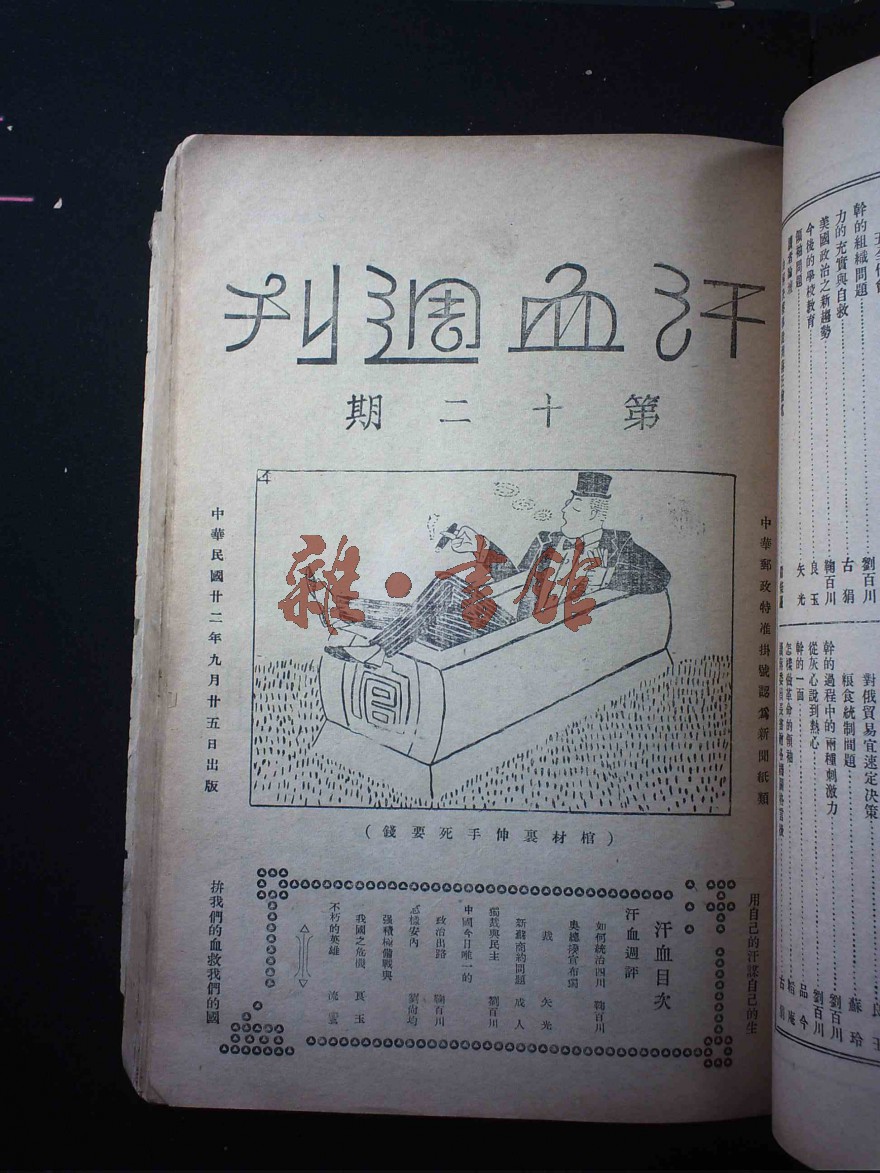 汗血週刊
第十二期
中華郵政特准掛號認為新聞紙類
中華民國廿二年九月廿五日出版
官
雜·書館
（棺材裏伸手死要錢）
用自己的汗謀自己的生
汗血目次
汗血週評
如何統治四川 鞠百川
奧總揆宣布獨
裁 矢光
新蘇商約問題 成人
獨裁與民主 劉百川
中國今日唯一的
政治出路 鞠百川
怎樣安內 劉尙均
强積極備戰與
我國之危機 良玉
不朽的英雄 流雲
拚我們的血救我們的國
幹的組織問題 劉百川
力的充實與自救 古狷
美國政治之新趨勢 鞠百川
今後的學校教育 良玉
矢光
對俄貿易宜速定决策 良玉
粮食統制問題 蘇玲
幹的過程中的兩種刺激力 劉百川
從灰心說到熱心 劉百川
幹的一面 品今
怎樣做革命的領袖